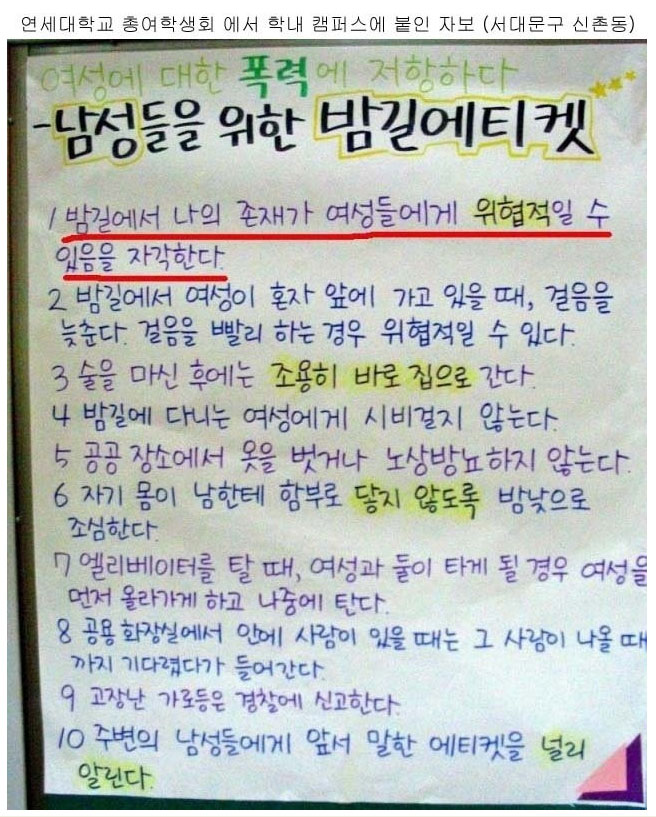 연세대학교 총여학생회 에서 학내 캠퍼스에 붙인 자보 (서대문구 신촌동)
여성에 대한 폭력에 저항하다
-남성들을 위한 밤길에티켓
1 밤길에서 나의 존재가 여성들에게 위협적일 수
있음을 자각한다.
2 밤길에서 여성이 혼자 앞에 가고 있을 때, 걸음을
늦춘다. 걸음을 빨리 하는 경우 위협적일 수 있다.
3 술을 마신 후에는 조용히 바로 집으로 간다.
4 밤길에 다니는 여성에게 시비걸지 않는다.
5 공공 장소에서 옷을 벗거나 노상방뇨하지 않는다.
6 자기 몸이 남한테 함부로 닿지 않도록 밤낮으로
조심한다.
7 엘리베이터를 탈 때, 여성과 둘이 타게 될 경우 여성을
먼저 올라가게 하고 나중에 탄다.
8 공용 화장실에서 안에 사람이 있을 때는 그 사람이 나올 때
까지 기다렸다가 들어간다.
9 고장난 가로등은 경찰에 신고한다.
10 주변의 남성들에게 앞서 말한 에티켓을 널리
알린다.